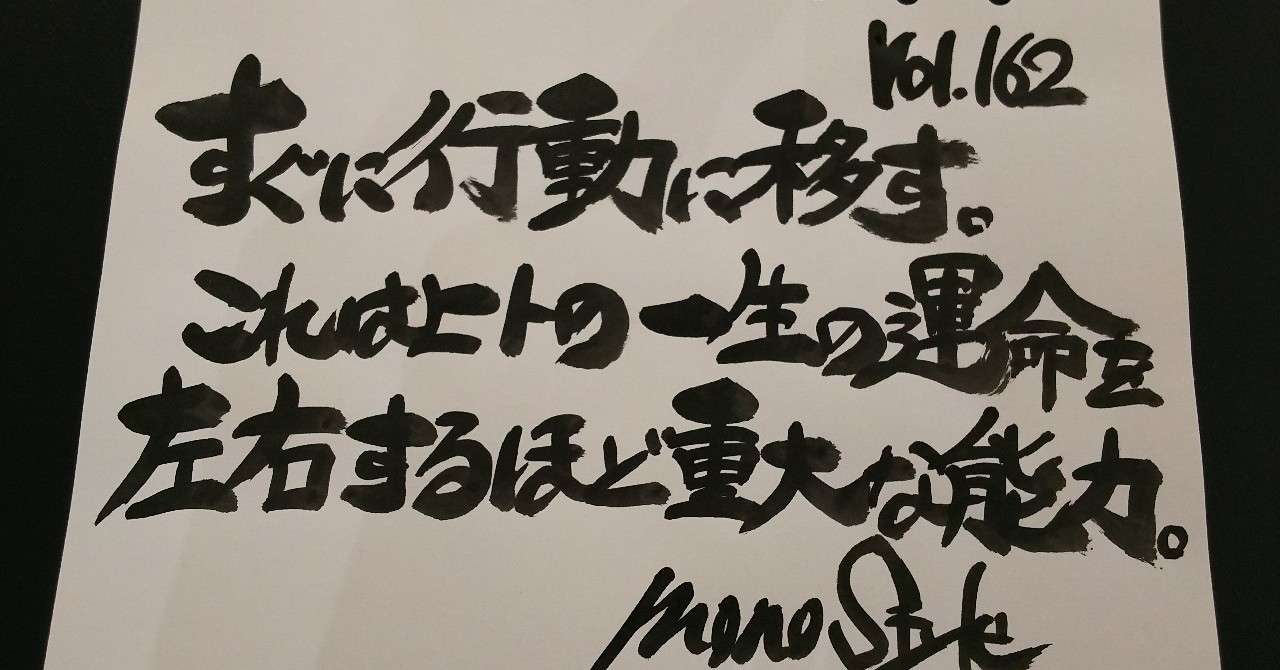 Vol.162
すぐに行動に移す。
これはヒトの一生の運命を
左右するほど重大な能力。
mono Style